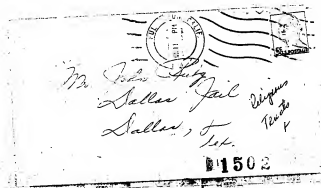 PM
Mr John Ruby
Dallas Jail
Dallas,
Tex.
Religious
Tracts
1502